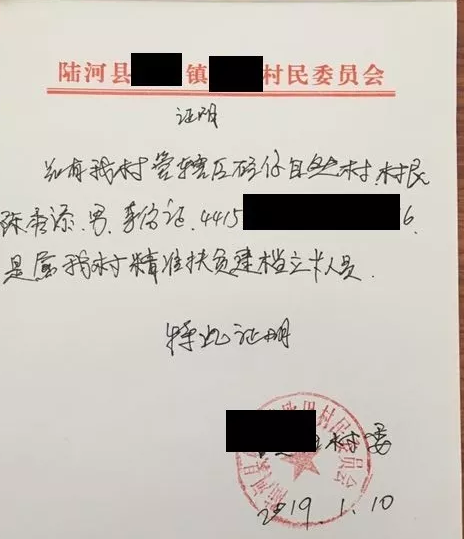 陆河县 镇 村民委员会
证明
兹有我村管辖区 仔自然村,村民
陈 添,男,身份证,4415 6,
是属我村精准扶贫建档立卡人员.
特此证明
村委
2019.1.10
陆河县 村民委员会